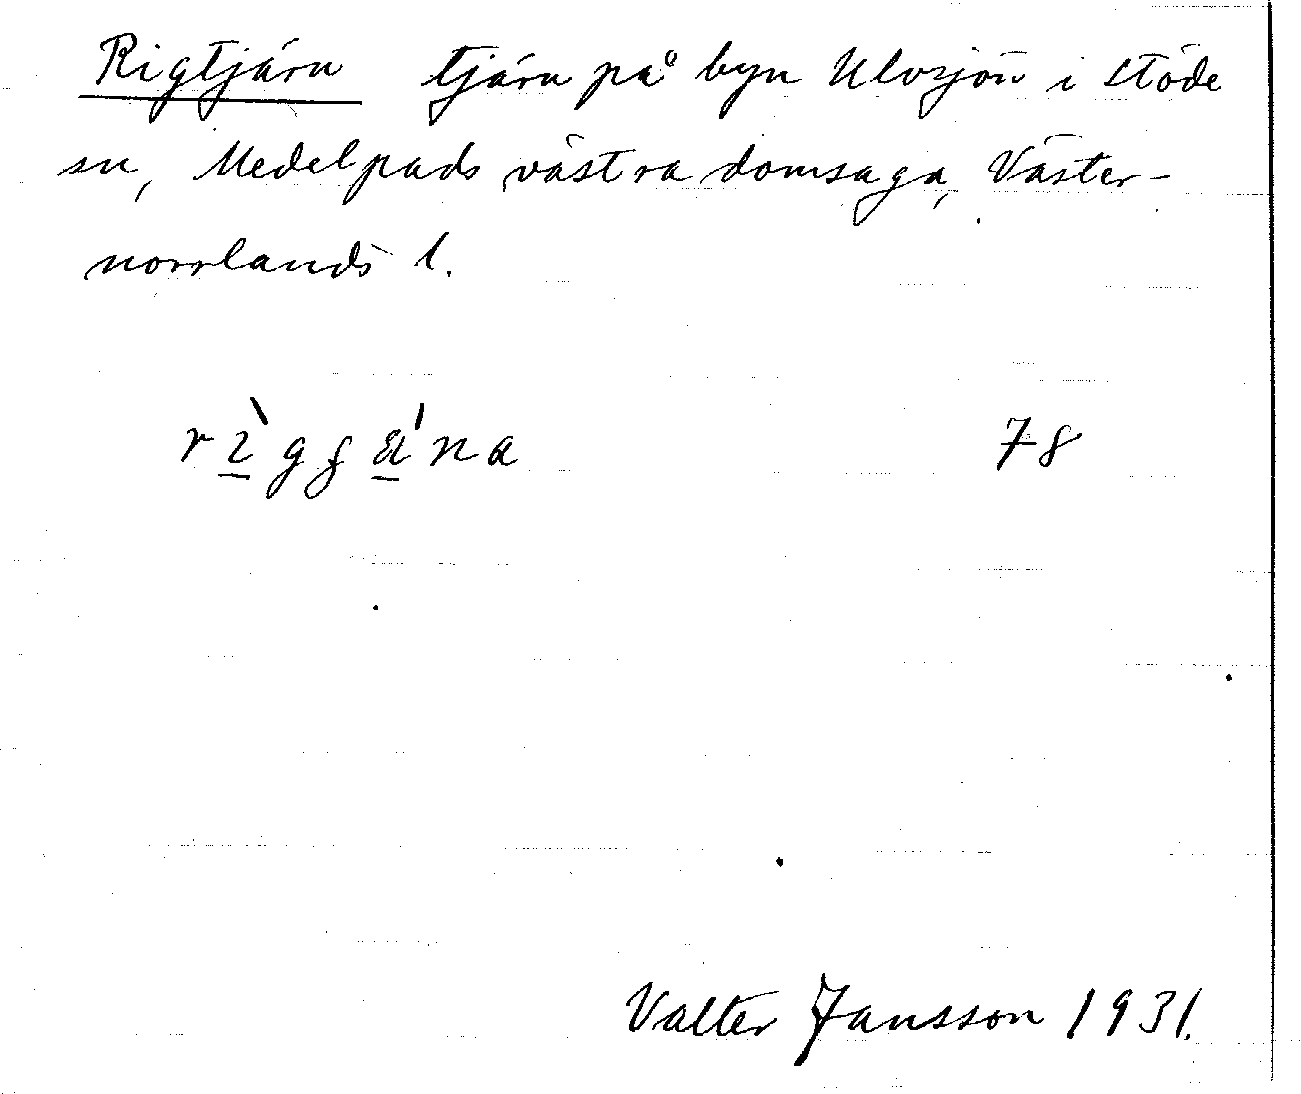 Rigtjärn tjärn på byn Ulvsjön i Stöde
sn, Medelpads västra domsaga, Väster-
norrlands l.
78
Valter Jansson 1931.